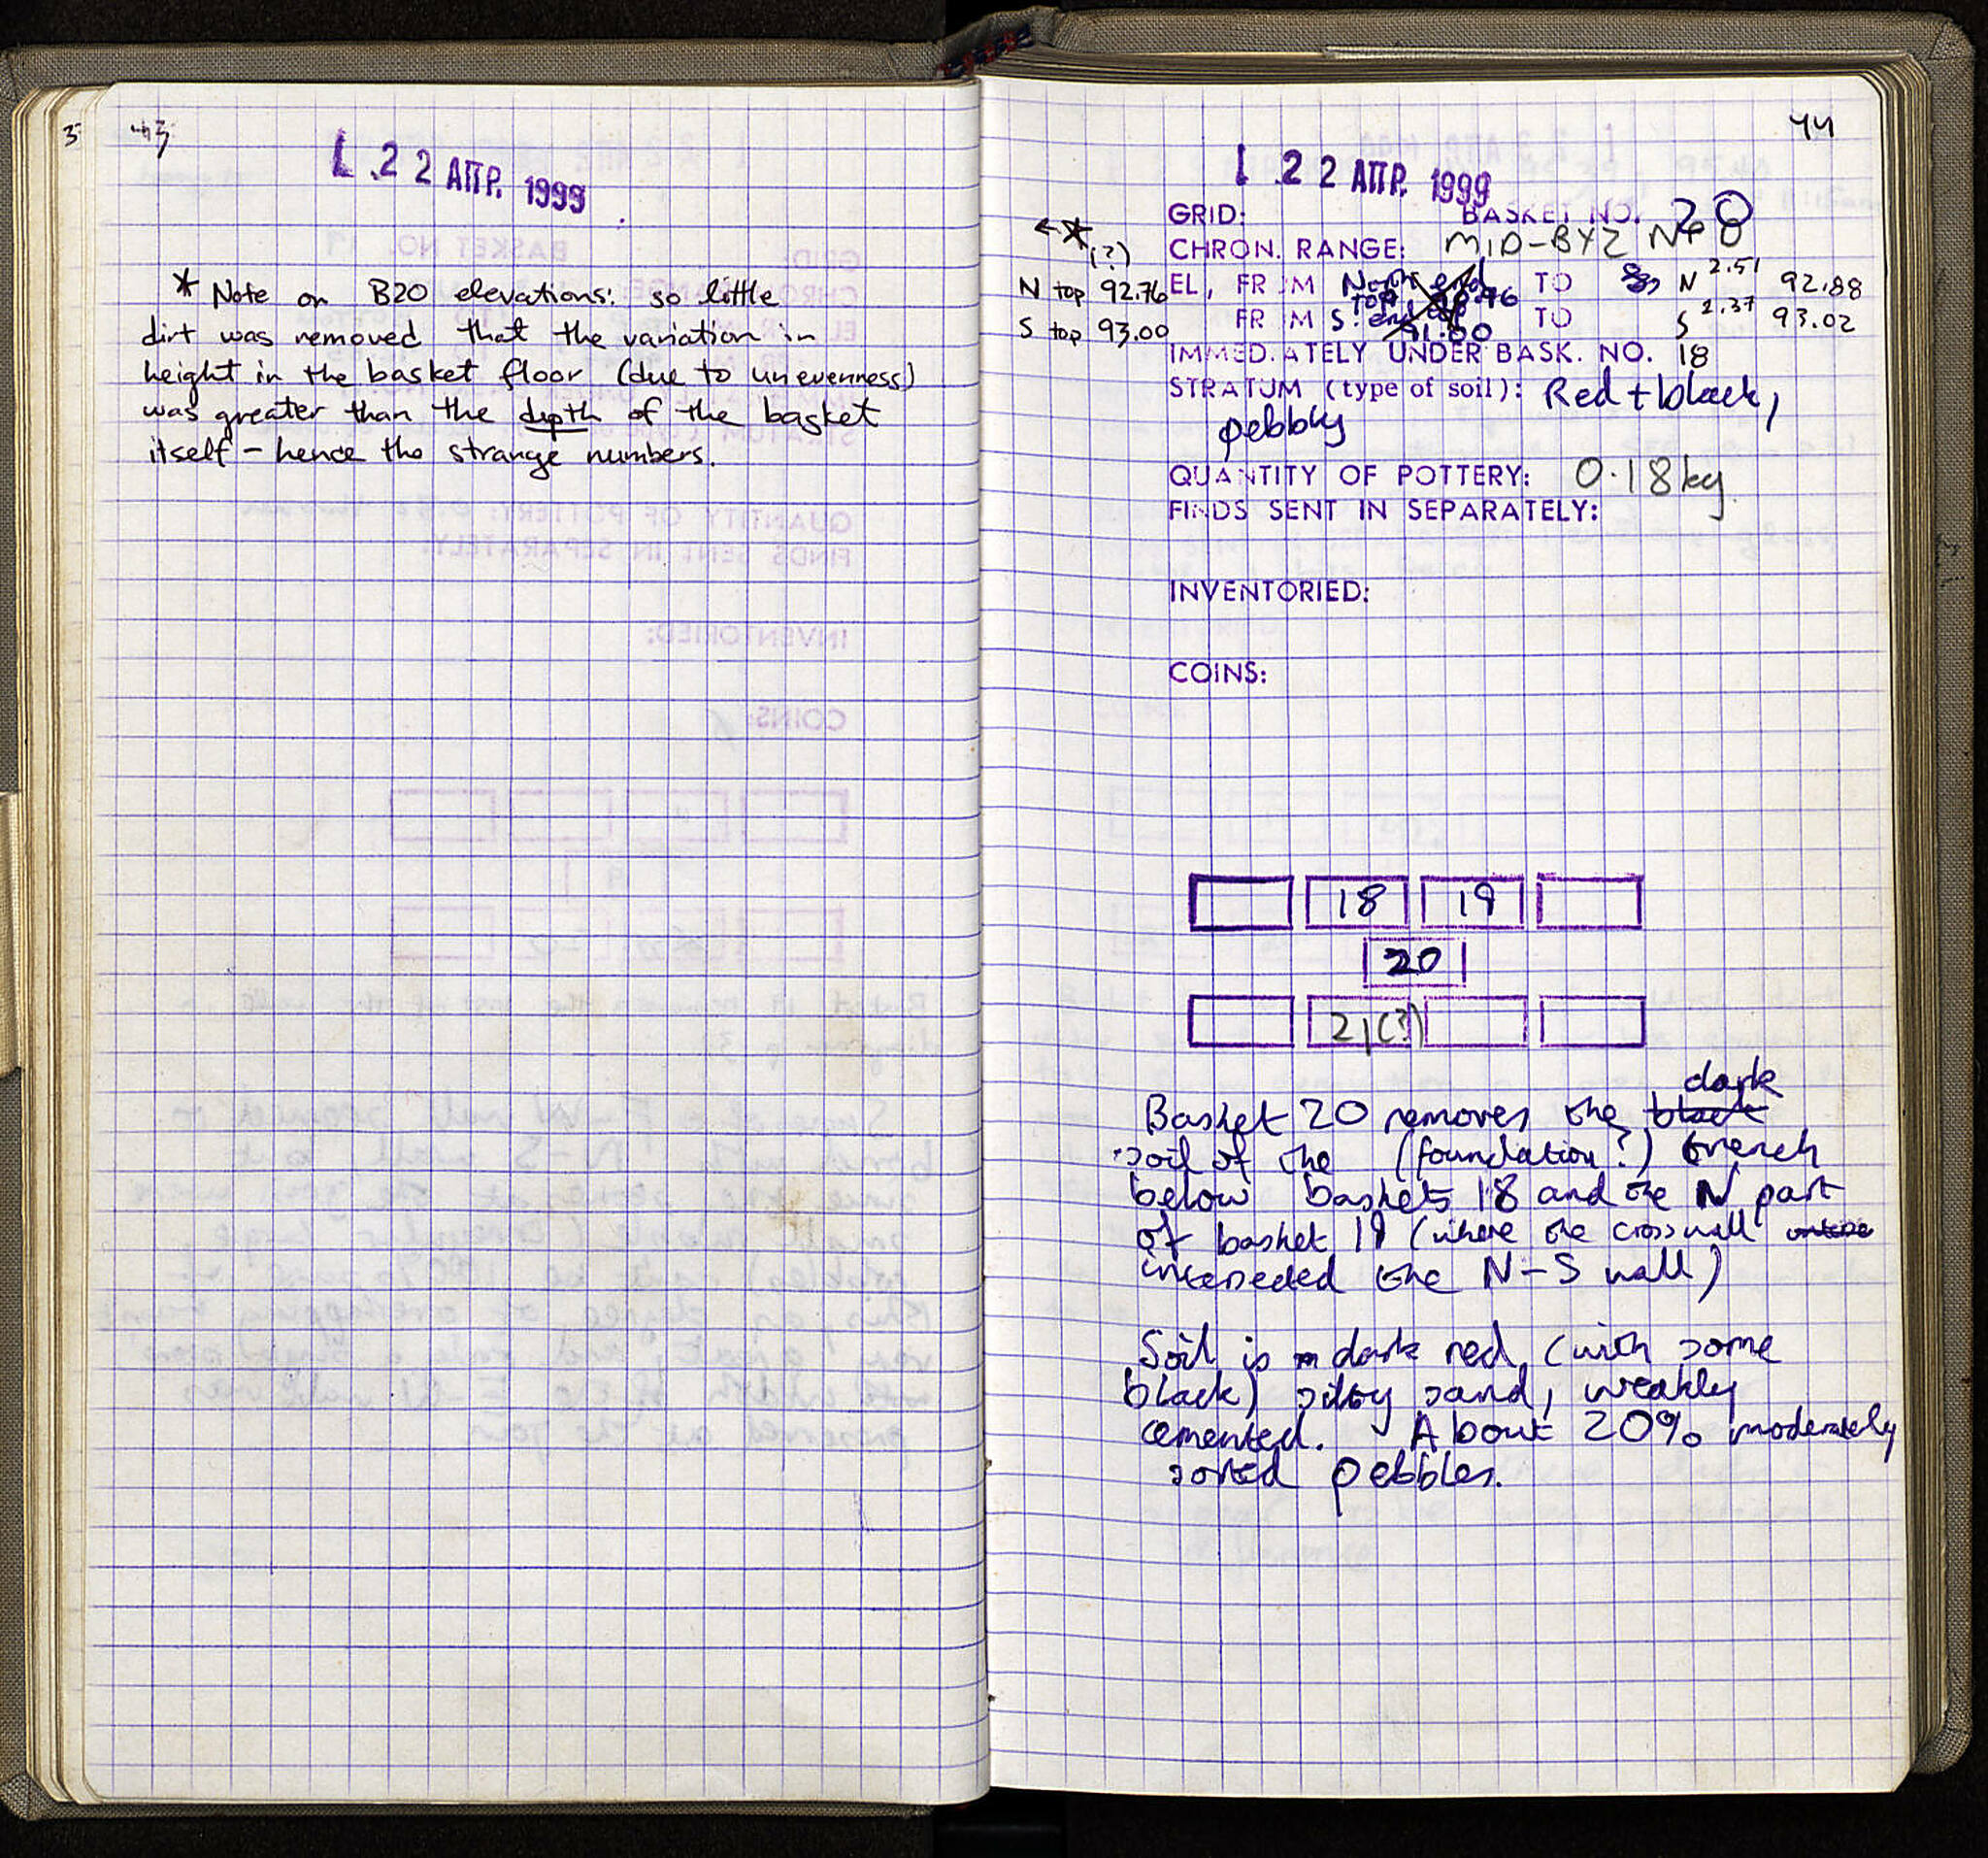 43
22 ΑΠΡ. 1999
* Note on B20 elevations: so little
dirt was removed that the variation in
height in the basket floor (due to unevenness)
was greater than the depth of the basket
itself - hence the strange numbers.
44
22 ΑΠΡ. 1999
GRID: BASKET NO. 20
←* (?)
CHRON. RANGE: MID-BYZ NPD
N top 92.76 EL, FROM North end top TO N 2.51 92.88
S top 93.00 FROM S. end TO S 2.37 93.02
IMMEDIATELY UNDER BASK. NO. 18
STRATUM (type of soil): Red + black,
pebbly
QUANTITY OF POTTERY: 0.18 kg.
FINDS SENT IN SEPARATELY:
INVENTORIED:
COINS:
18 19
20
21(?)
dark
Basket 20 removes the black
soil of the (foundation?) trench
below baskets 18 and the N part
of basket 19 (where the crosswall
interseded the N-S wall)
Soil is dark red (with some
black) silty sand, weakly
cemented. About 20% moderately
sorted pebbles.